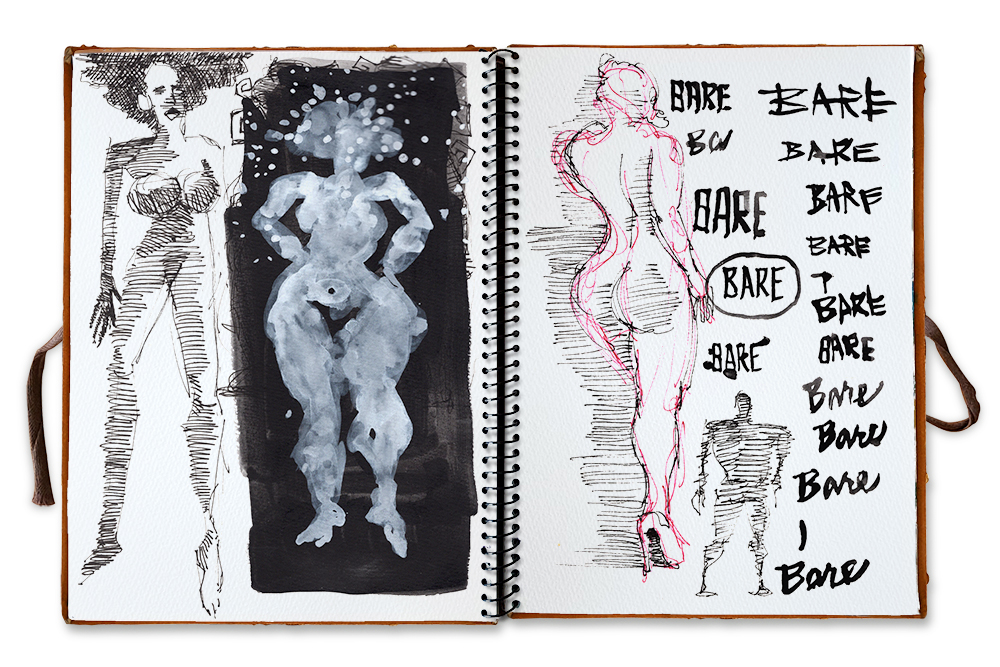 BARE
BARE
BARE
BARE
BARE
BARE
BARE
BARE
BARE
BARE
Bare
Bare
Bare
Bare